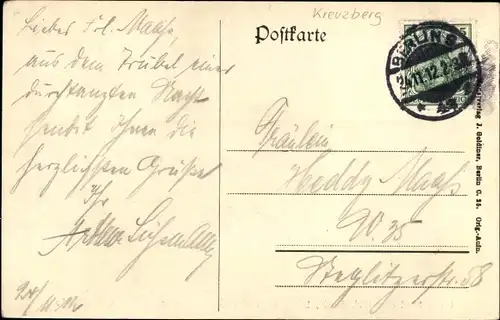 Liebes Frl. Maass,
aus dem Trubel einer
durchtanzten Nacht
sendet Ihnen die
herzlichsten Grüße
Ihr
24/11.12.
Kreuzberg
Postkarte
BERLIN S
24.11.12.
Fräulein
Heddy Maass
W. 35
Steglitzerstr. 58
J. Goldiner, Berlin C. 25. Orig.-Aufn.